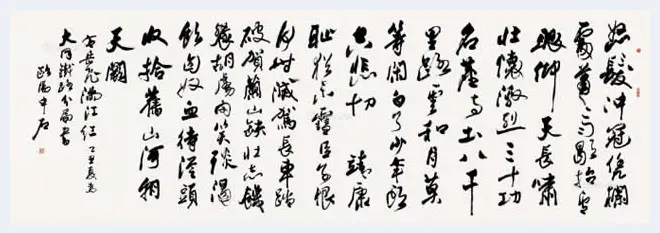 怒髮沖冠凭欄
處蕭蕭雨歇抬望
眼仰天長嘯
壯懷激烈三十功
名塵與土八千
里路雲和月莫
等閑白了少年頭
空悲切 靖康
恥猶未雪臣子恨
何時滅駕長車踏
破賀蘭山缺壯志饑
餐胡虜肉笑談渴
飲匈奴血待從頭
收拾舊山河朝
天闕
岳飛滿江紅 丁丑夏為
大同分局書
歐陽中石